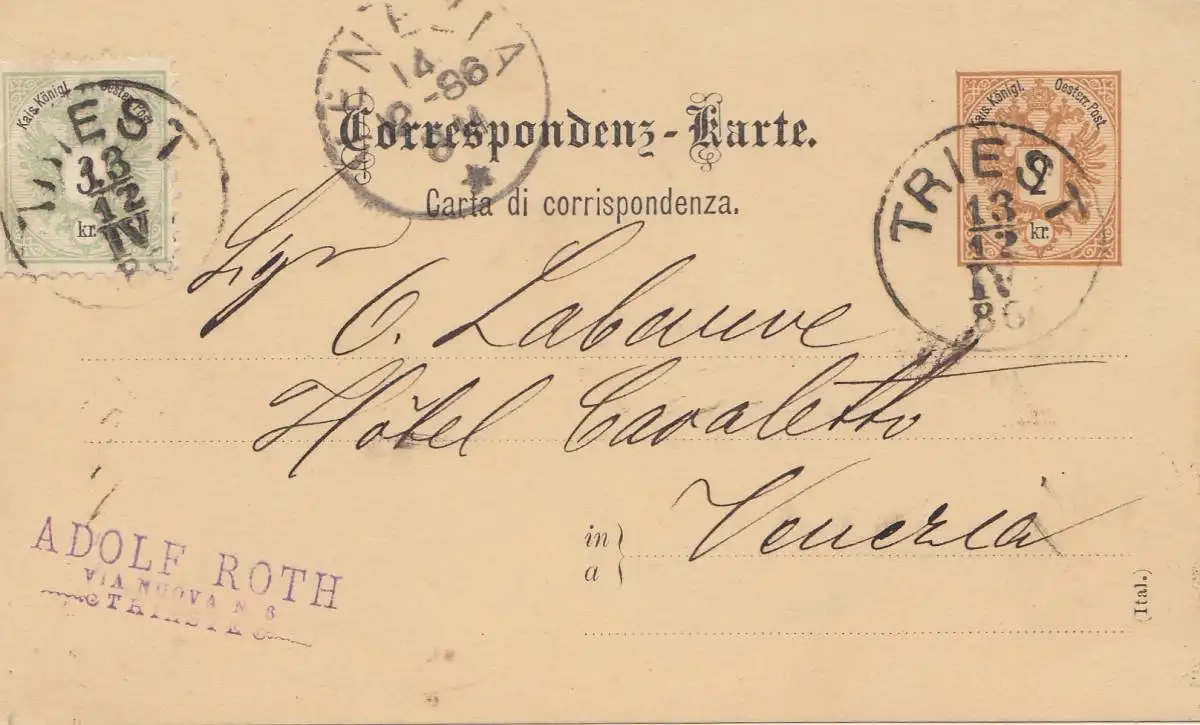 VENEZIA
14
-86
Kais. Königl. Oesterr. Post.
3
kr.
TRIEST
13
12
IV
Correspondenz-Karte.
Carta di corrispondenza.
Kais. Königl. Oesterr. Post.
2
kr.
TRIEST
13
12
IV
86
Sigr
C. Labauve
Hôtel Cavaletto
in
a
Venezia
ADOLF ROTH
VIA NUOVA N 3
TRIESTE
(Ital.)